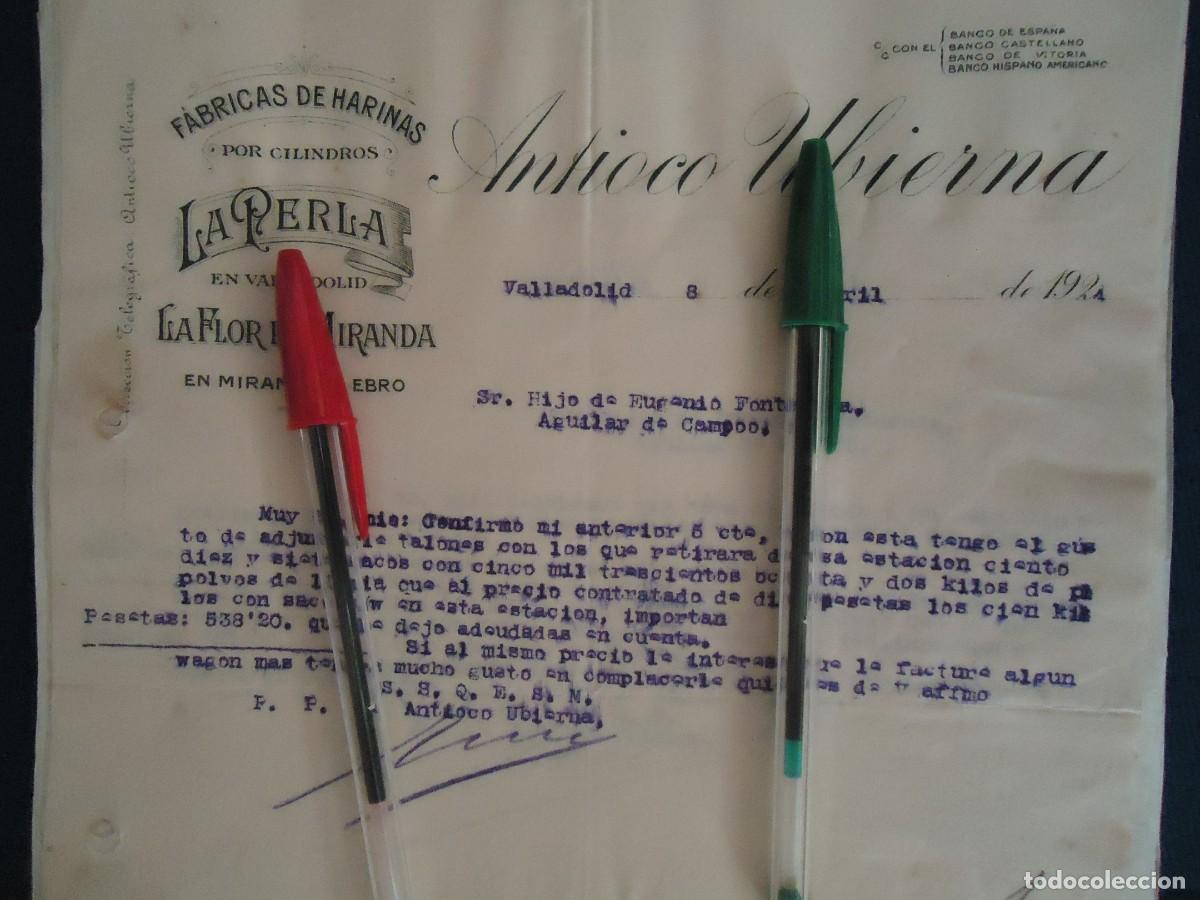 C/C CON EL
BANCO DE ESPAÑA
BANCO CASTELLANO
BANCO DE VITORIA
BANCO HISPANO AMERICANO
FÁBRICAS DE HARINAS
POR CILINDROS
LA PERLA
EN VAL DOLID
LA FLOR D MIRANDA
EN MIRAN EBRO
Dirección Telegráfica Antioco Ubierna
Antioco Ubierna
Valladolid 8 de ril de 1924
Sr. Hijo de Eugenio Font a.
Aguilar de Campoo.
Muy mio: Confirmo mi anterior 5 cte, on esta tengo el gus
to de adjun le talones con los que retirara d sa estacion ciento
diez y siet acos con cinco mil trescientos oc ta y dos kilos de
polvos de l ia que al precio contratado de di pesetas los cien kil
los con sac w en esta estacion, importan
Pesetas: 538'20. qu e dejo adeudadas en cuenta.
Si al mismo precio le interes re le facture algun
wagon mas te mucho gusto en complacerle qu es de V affmo
S. S. Q. E. S. M.
P. P. Antioco Ubierna,
todocoleccion